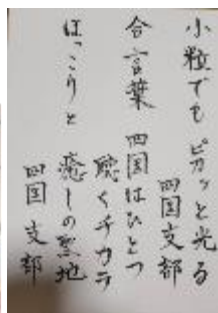 小粒でも ピカッと光る
四国支部
合言葉 四国はひとつ
聴くチカラ
ほっこりと 癒しの聖地
四国 支部